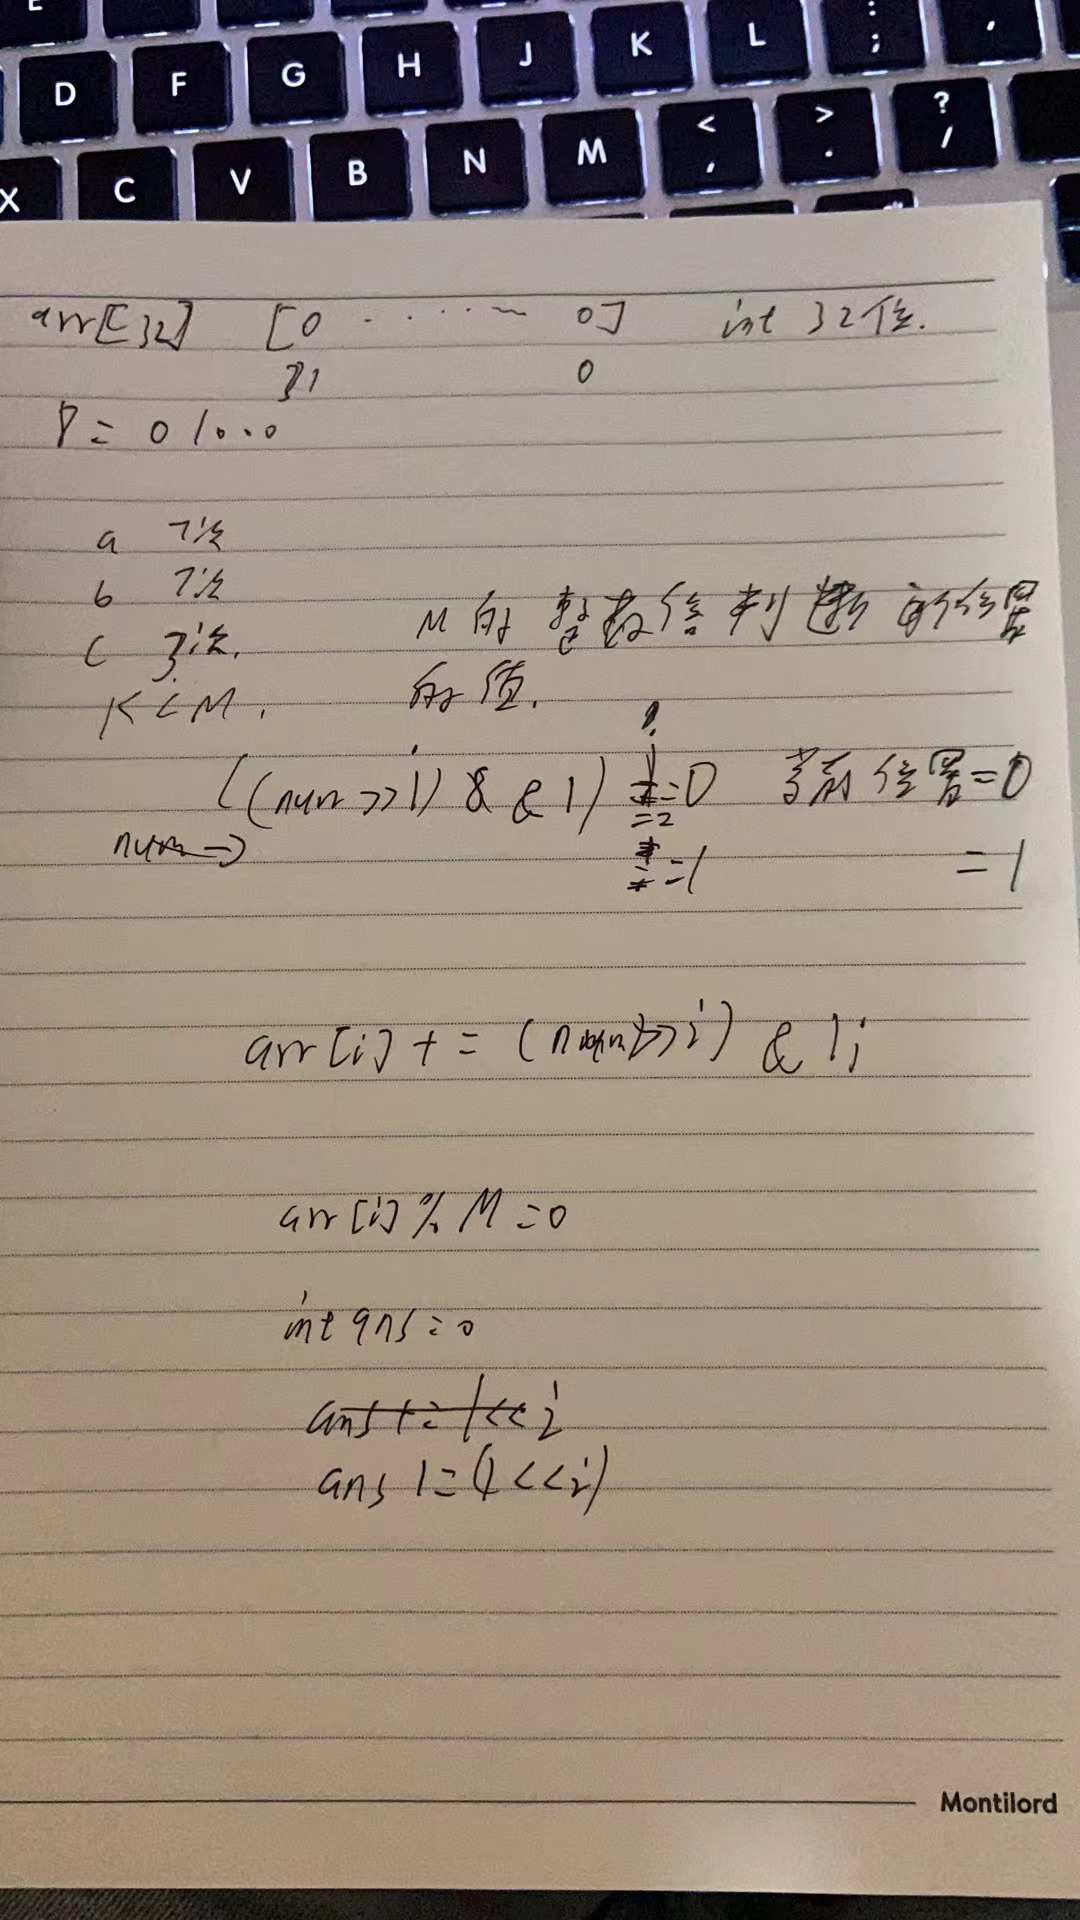 E
D F G H J K L : ;
X C V B N M < , > . ? /
arr[32] [0 ····~ 0] int 32位.
31 0
P = 010..0
a 7次
b 7次
c 3次.
K<M.
M的整数倍判断 的位置
的值.
((num>>i) && 1) !=0 当前位置=0
=2
num→
=1 =1
arr[i] += (num>>i) & 1;
arr[i] % M = 0
int ans = 0
ans += 1<<i
ans |= (1<<i)
Montilord